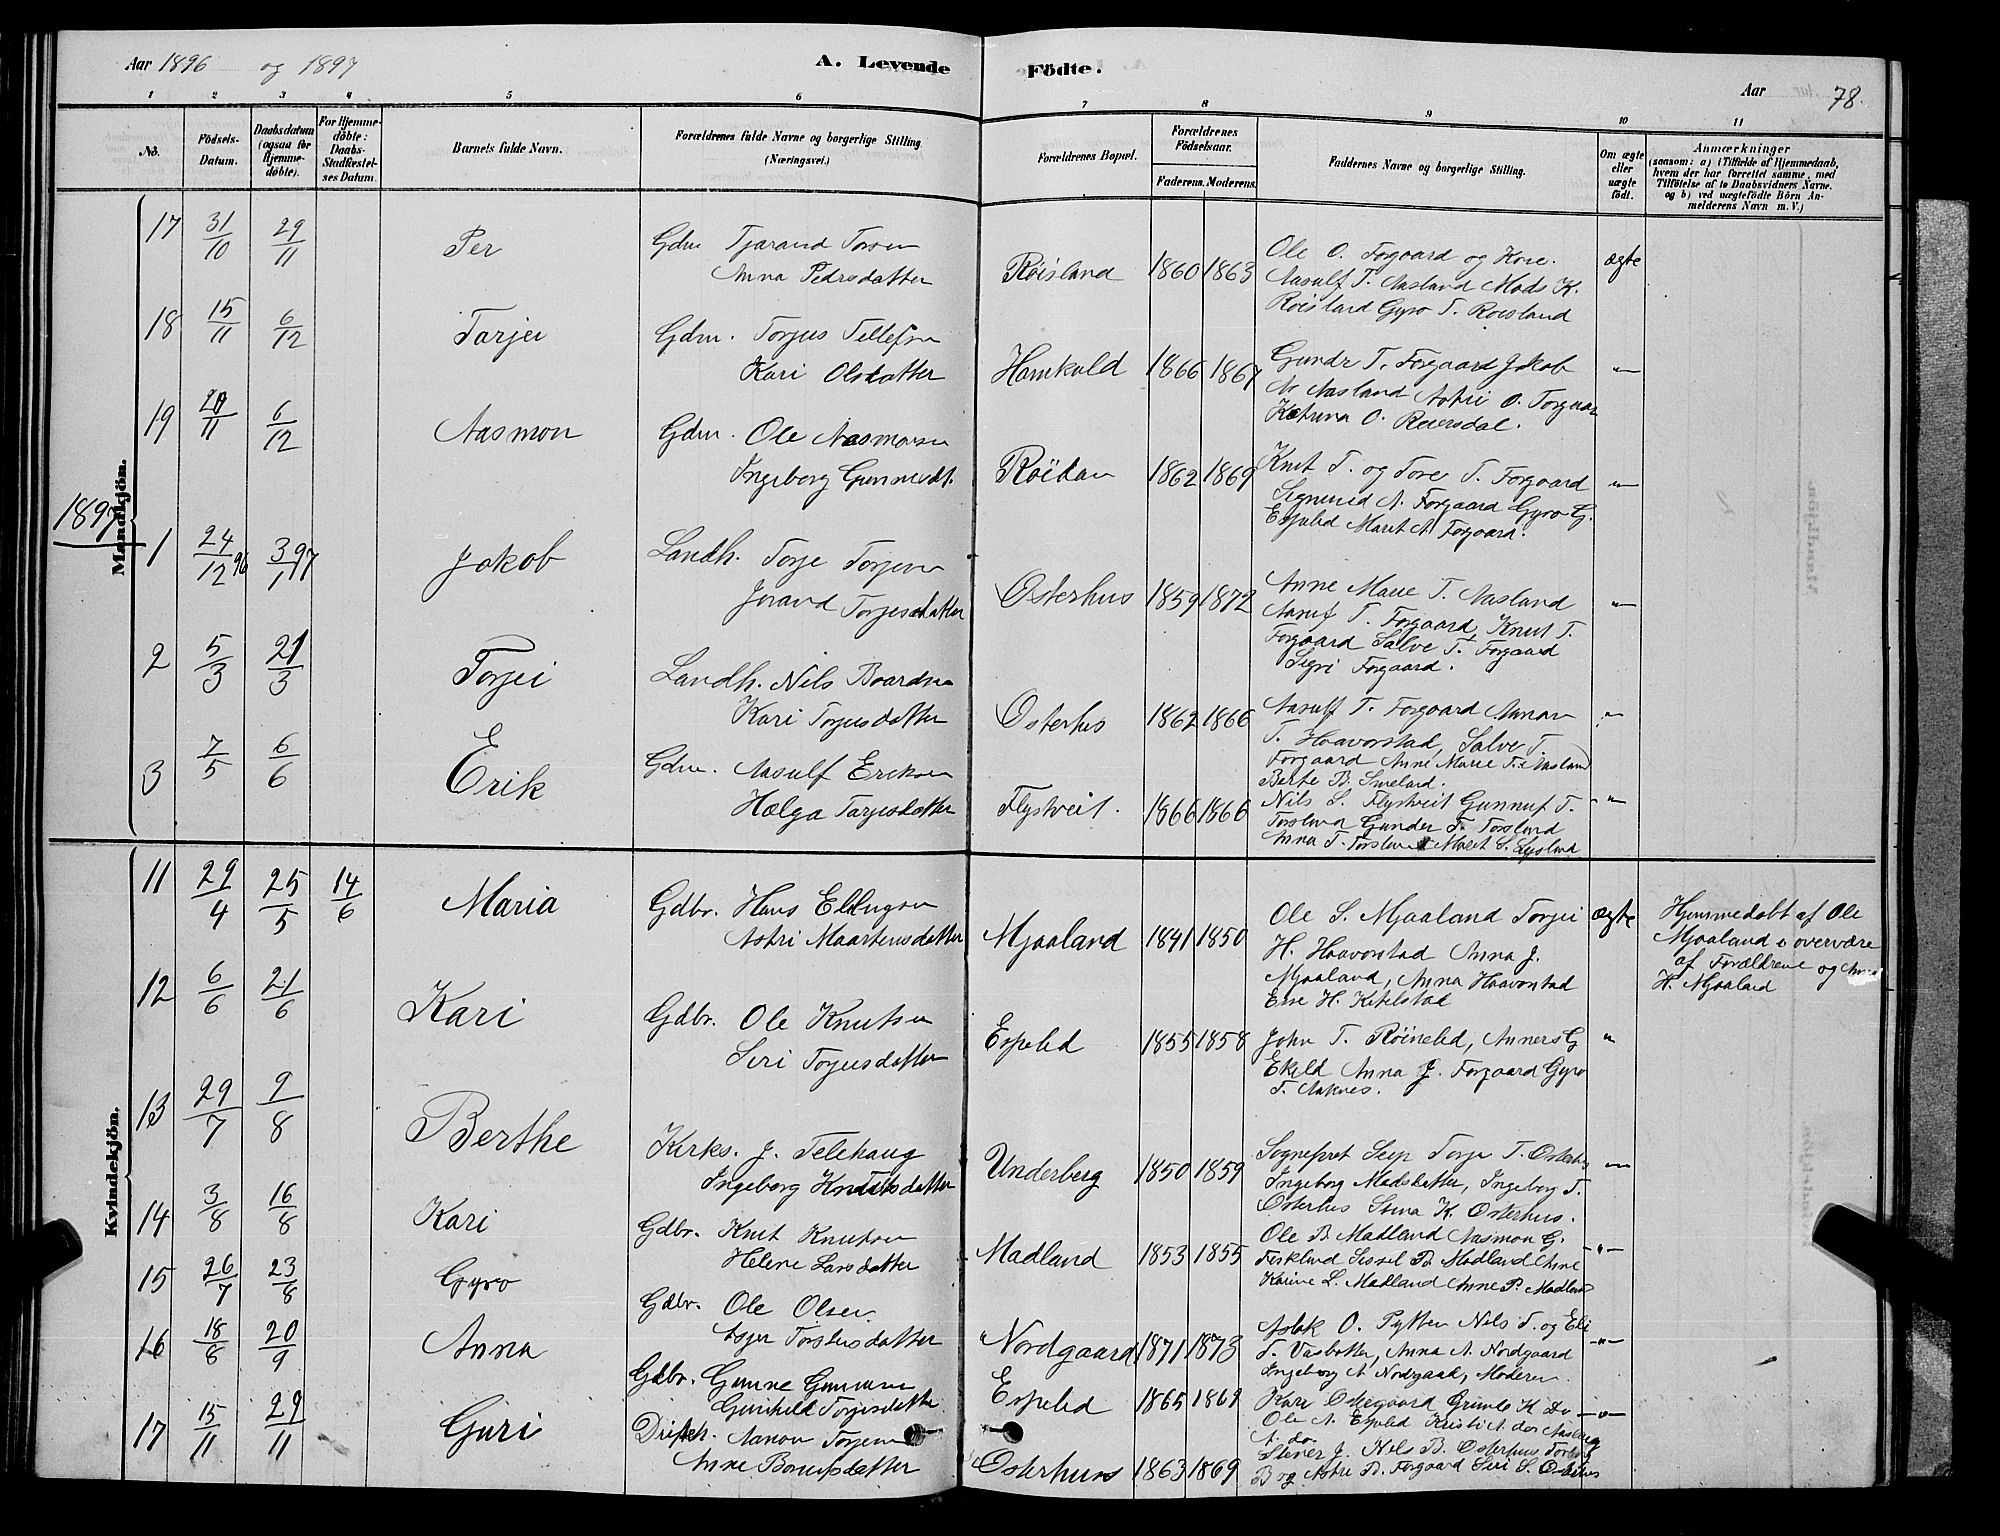 Aar 1896 og 1897
A. Levende Födte.
Aar 78.
1 2 3 4 5 6 7 8 9 10 11
No. Födsels-Datum. Daabsdatum (ogsaa for Hjemmedöbte). For Hjemmedöbte: Daabs-Stadfæstelses Datum. Barnets fulde Navn. Forældrenes fulde Navne og borgerlige Stilling. (Næringsvei.) Forældrenes Bopæl. Forældrenes Födselsaar. Faderens. Moderens. Faddernes Navne og borgerlige Stilling. Om ægte eller uægte födt. Anmærkninger (saasom: a) i Tilfælde af Hjemmedaab, hvem der har forrettet samme, med Tilföielse af to Daabsvidners Navne, og b) ved uægtefödte Börn Anmelderens Navn m. V.)
Mandkjön.
17 31/10 29/11 Per Gdm Tjarand Torsen
Anna Pedrsdatter
Röisland 1860 1863
Ole O. Forgaard og Kone.
Aasulf T. Aasland Mads K.
Röisland Gyro T. Röisland
ægte
18 15/11 6/12 Tarjei Gdm. Torjus Tellefsen
Kari Olsdatter
Homkald 1866 1867
Gundr T. Forgaard Jakob
N Aasland Astri O. Forgaar
Katrina O. Reiersdal.
"
19 20/11 6/12 Aasmon Gdm. Ole Aasmonsen
Ingeborg Gunnsdt.
1862 1869
Knut T. og Tore T. Forgaard
A. Forgaard Gyro G.
Espelid Marit A Forgaard.
"
1897
1 24/12 96 3/1 97 Jakob Landh. Torje Torjesen
Jorand Torjesdatter
Osterhus 1859 1872
Anne Marie T. Aasland
T. Forgaard, Knut T.
Forgaard Salve T. Forgaard
Sigri Forgaard.
"
2 5/3 21/3 Torjei Landh. Nils Boardsen
Kari Torjusdatter
Osterhus 1862 1866
Aasulf T. Forgaard
T. Haavorstad, Salve T.
Forgaard Anne Marie T. Aasland
Berte B. Smeland.
"
3 7/5 6/6 Erik Gdm. Aasulf Eriksen
Hælga Tarjesdatter
Flystveit. 1866 1866
Nils S. Flystveit Gunnuf T.
Torsland Gunder T. Torsland
Anna T. Torsland Marit S. Lysland
"
Kvindekjön.
11 29/4 25/5 14/6 Maria Gdbr. Hans Ellingsen
Astri Maartensdatter
Mjaaland 1841 1850
Ole S. Mjaaland Torjei
H. Haavorstad Anna J.
Mjaaland, Anna Haavorstad
H. Kitelstad
ægte
Hjemmedøbt af Ole
Mjaaland i overvære
af Forældrene og Anna
H. Mjaaland
12 6/6 21/6 Kari Gdbr. Ole Knutsen
Siri Torjusdatter
Espelid 1855 1858
John T. Röinelid, Anners G
Anna J. Forgaard Gyro
T. Aaknes.
"
13 29/7 9/8 Berthe Kirks. J. Telehaug
Ingeborg Knutsdatter
Underberg 1850 1859
Sognepret Seip Torje T. Osterhus
Ingeborg Madsdatter, Ingeborg T.
Osterhus Stina K. Osterhus.
"
14 3/8 16/8 Kari Gdbr. Knut Knutsen
Helene Larsdatter
Madland 1853 1855
Ole B Madland Aasmon G.
Sissel B. Madland Anne
Karine L. Madland Anne P. Madland
"
15 26/7 23/8 Gyro Gdbr. Ole Olsen
Asger Torstensdatter
Nordgaard 1871 1873
Aslak O. Pytten Nils T. og Eli
T. Vasbotten, Anna A. Nordgaard
Ingeborg A Nordgaard, Moderen
"
16 18/8 20/9 Anna Gdbr. Gunne Gunnsen
Gunhild Torjesdatter
Espelid 1865 1869
Kari K Do
Ole A. Espelid Kristi A. do
A. do.
"
17 15/11 29/11 Guri Aanon Torjesen
Anne
Osterhus 1863 1869
J. Nils B. Osterhus
B og Astri B. Forgaard Siri S. Osterhus